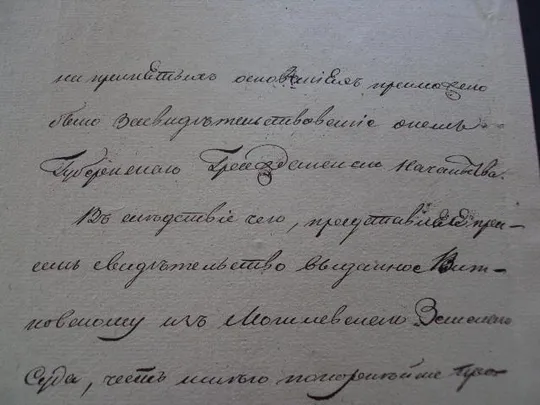 на принятыхъ основаніяхъ приложено
было Засвидѣтельствованіе онемъ
Губернскаго Гражданскаго Начальства.
Въ слѣдствіе чего, представляя при-
семъ свидѣтельство выданное Вит-
ковскому изъ Могилевскаго Земскаго
Суда, честь имѣю покорнѣйше